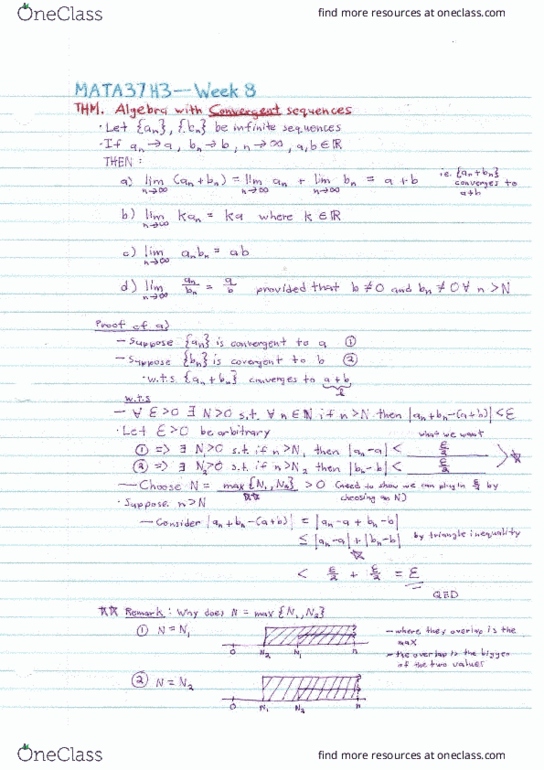 OneClass
find more resources at oneclass.com
MATA37H3 — Week 8
THM. Algebra with Convergent sequences
· Let {aₙ}, {bₙ} be infinite sequences
· If aₙ → a, bₙ → b, n → ∞, a, b ∈ ℝ
THEN:
a) lim n→∞ (aₙ + bₙ) = lim n→∞ aₙ + lim n→∞ bₙ = a + b
i.e. {aₙ + bₙ}
converges to
a+b
b) lim n→∞ kaₙ = ka where k ∈ ℝ
c) lim n→∞ aₙbₙ = ab
d) lim n→∞ aₙ/bₙ = a/b provided that b ≠ 0 and bₙ ≠ 0 ∀ n > N
Proof of a)
— Suppose {aₙ} is convergent to a ①
— Suppose {bₙ} is covergent to b ②
· w.t.s {aₙ + bₙ} converges to a+b
w.t.s
— ∀ ε>0 ∃ N>0 s.t. ∀ n ∈ ℕ if n>N then |aₙ+bₙ-(a+b)| < ε
· Let ε>0 be arbitrary
what we want
① => ∃ N₁>0 s.t. if n>N₁ then |aₙ-a| < ε/2
② => ∃ N₂>0 s.t. if n>N₂ then |bₙ-b| < ε/2
☆
— Choose N = max{N₁, N₂} > 0 (need to show we can plug in ε/2 by
☆☆ choosing an N)
· Suppose n>N
— Consider |aₙ+bₙ-(a+b)| = |aₙ-a + bₙ-b|
≤ |aₙ-a| + |bₙ-b| by triangle inequality
☆
< ε/2 + ε/2 = ε
QED
☆☆ Remark: Why does N = max{N₁, N₂}
① N = N₁
0 N₂ N₁ n
— where they overlap is the
max
— the overlap is the bigger
of the two values
② N = N₂
0 N₁ N₂ n
OneClass
find more resources at oneclass.com